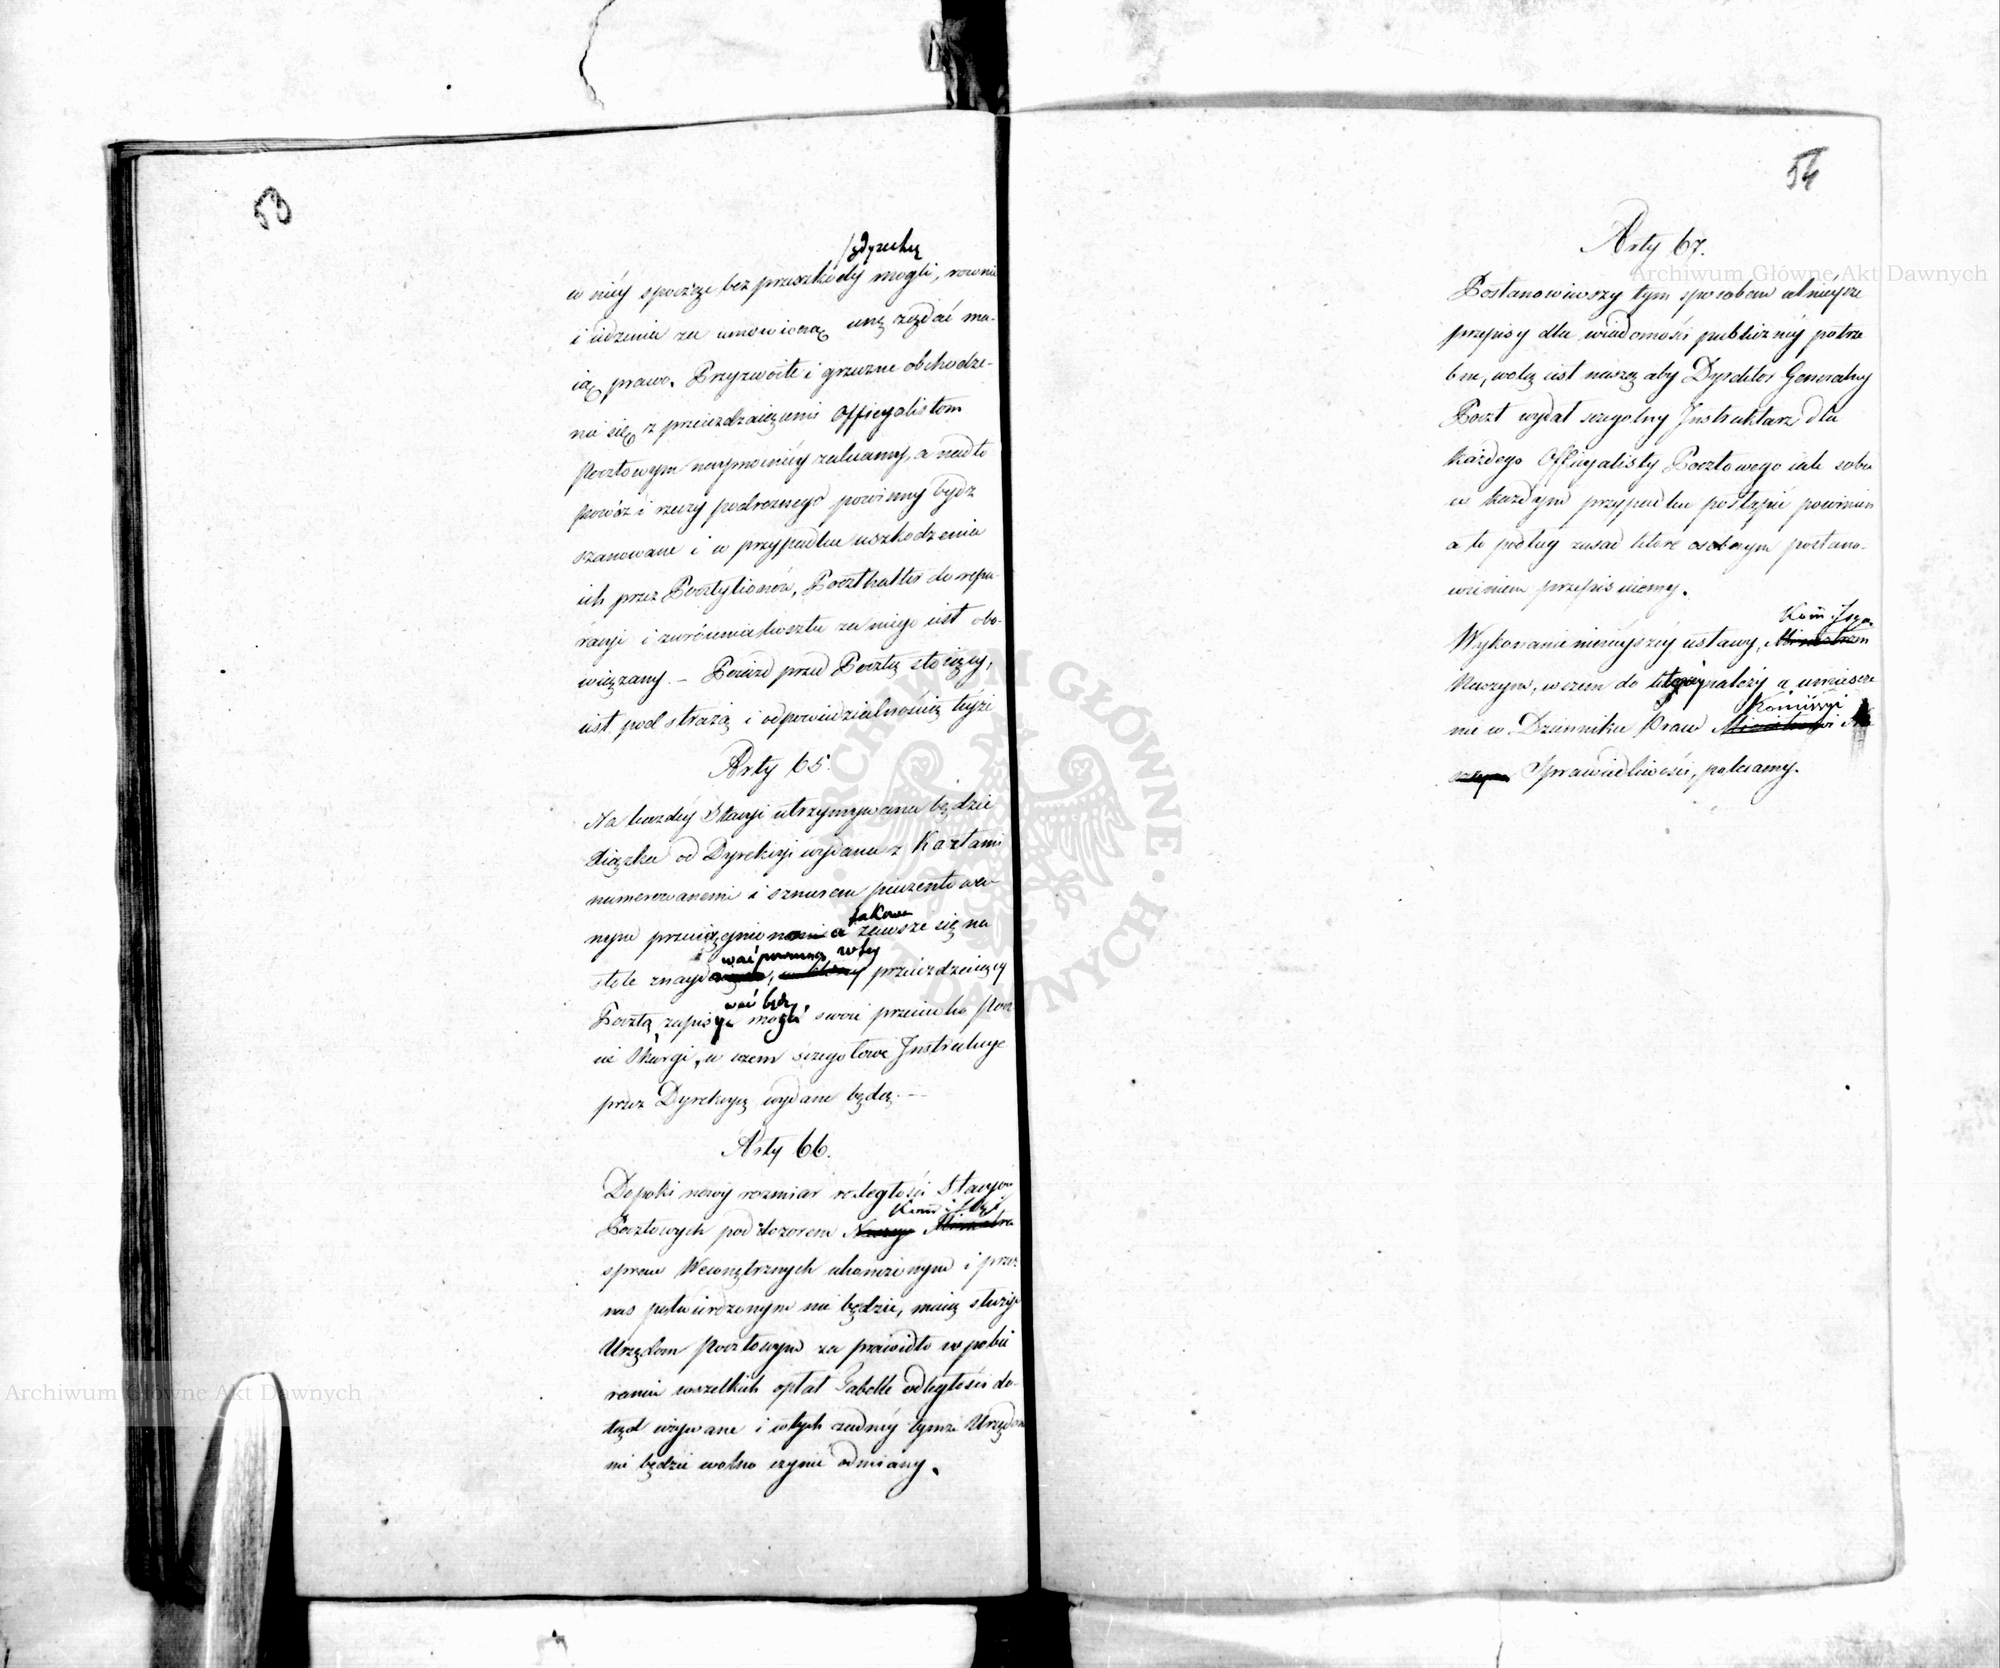 53
w niey spocząć bez przeszkody mogli, rownie
i iedzenia za umowioną cenę żądać ma-
ią prawo. Przyzwoite i grzeczne obchodze-
nie się z przeieżdzaiącemi Officyalistom
Pocztowym naymocniey zalecamy, a nadto
powóz i rzeczy podrożnego powinny bydz
szanowane i w przypadku uszkodzenia
ich przez Pocztylionów, Poczthalter do repa-
racyi i zwrócenia kosztu za niego iest obo-
wiązany. – Poiazd przed Pocztą stoiący,
iest pod strażą i odpowiedzialnością teyże
Arty 65.
Na każdey Stacyi utrzymywana będzie
Xiążka od Dyrekcyi wydana z Kartami
numerowanemi i sznurem pieczętowa-
nym przeciągnionemi a takowa zawsze się na
stole znaydować powinna, żeby przeieżdzaiący
Pocztą zapisywać mogli swoie przeciwko Pocz-
cie Skargi, w czem szczegołowe Instrukcye
przez Dyrekcyą wydane będą. —
Arty 66.
Dopoki nowy rozmiar rozległości Stacyów
Pocztowych pod dozorem Naszego Ministra
spraw Wewnętrznych ukończonym i przez
nas potwierdzonym nie będzie, maią służyć
Urzędom Pocztowym za prawidło w pobie
raniu wszelkich opłat Tabelle odległości do-
tąd używane i w tych żadney tymże Urzędom
nie będzie wolno czynić odmiany.
54
Arty 67.
Postanowiwszy tym sposobem ninieysze
przepisy dla wiadomości publiczney potrze
bne, wolą iest naszą aby Dyrektor Generalny
Poczt wydał szczegolny Instruktarz dla
każdego Officyalisty Pocztowego iak sobie
w każdym przypadku postąpić powinien
a to podług zasad które osobnym postano-
wieniem przepiszemy.
Wykonanie ninieyszey ustawy, Ministrom
Naszym, w czem do którego należy a umiesce
nie w Dzienniku Praw Kommissyi
Sprawiedliwości, polecamy.
Archiwum Główne Akt Dawnych
Archiwum Główne Akt Dawnych
ARCHIWUM GŁÓWNE AKT DAWNYCH